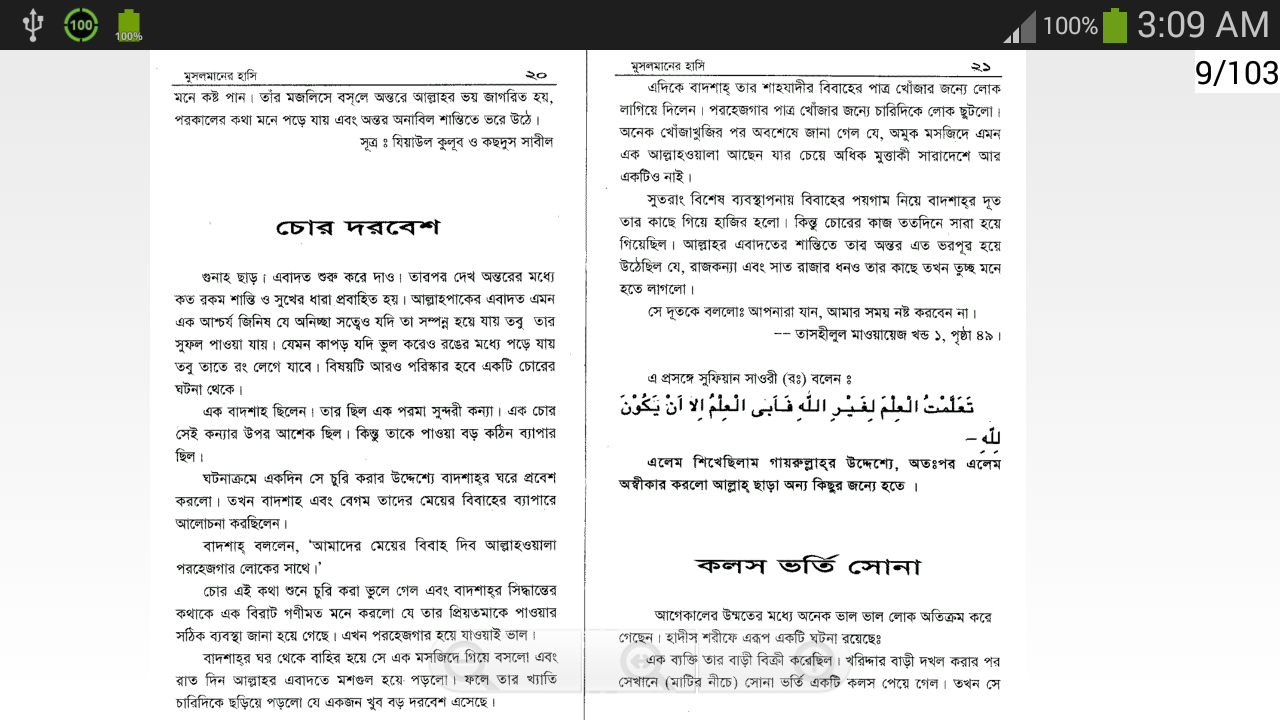 100
100%
100%
3:09 AM
9/103
মুসলমানের হাসি ২০
মনে কষ্ট পান। তাঁর মজলিসে বস্‌লে অন্তরে আল্লাহর ভয় জাগরিত হয়,
পরকালের কথা মনে পড়ে যায় এবং অন্তর অনাবিল শান্তিতে ভরে উঠে।
সূত্র ঃ যিয়াউল কুলূব ও কছদুস সাবীল
চোর দরবেশ
গুনাহ ছাড়। এবাদত শুরু করে দাও। তারপর দেখ অন্তরের মধ্যে
কত রকম শান্তি ও সুখের ধারা প্রবাহিত হয়। আল্লাহপাকের এবাদত এমন
এক আশ্চর্য জিনিষ যে অনিচ্ছা সত্ত্বেও যদি তা সম্পন্ন হয়ে যায় তবু তার
সুফল পাওয়া যায়। যেমন কাপড় যদি ভুল করেও রঙের মধ্যে পড়ে যায়
তবু তাতে রং লেগে যাবে। বিষয়টি আরও পরিস্কার হবে একটি চোরের
ঘটনা থেকে।
এক বাদশাহ ছিলেন। তার ছিল এক পরমা সুন্দরী কন্যা। এক চোর
সেই কন্যার উপর আশেক ছিল। কিন্তু তাকে পাওয়া বড় কঠিন ব্যাপার
ছিল।
ঘটনাক্রমে একদিন সে চুরি করার উদ্দেশ্যে বাদশাহ্‌র ঘরে প্রবেশ
করলো। তখন বাদশাহ এবং বেগম তাদের মেয়ের বিবাহের ব্যাপারে
আলোচনা করছিলেন।
বাদশাহ্ বললেন, ‘আমাদের মেয়ের বিবাহ দিব আল্লাহওয়ালা
পরহেজগার লোকের সাথে।’
চোর এই কথা শুনে চুরি করা ভুলে গেল এবং বাদশাহ্‌র সিদ্ধান্তের
কথাকে এক বিরাট গণীমত মনে করলো যে তার প্রিয়তমাকে পাওয়ার
সঠিক ব্যবস্থা জানা হয়ে গেছে। এখন পরহেজগার হয়ে যাওয়াই ভাল।
বাদশাহ্‌র ঘর থেকে বাহির হয়ে সে এক মসজিদে গিয়ে বসলো এবং
রাত দিন আল্লাহর এবাদতে মশগুল হয়ে পড়লো। ফলে তার খ্যাতি
চারিদিকে ছড়িয়ে পড়লো যে একজন খুব বড় দরবেশ এসেছে।
মুসলমানের হাসি ২১
এদিকে বাদশাহ্ তার শাহযাদীর বিবাহের পাত্র খোঁজার জন্যে লোক
লাগিয়ে দিলেন। পরহেজগার পাত্র খোঁজার জন্যে চারিদিকে লোক ছুটলো।
অনেক খোঁজাখুজির পর অবশেষে জানা গেল যে, অমুক মসজিদে এমন
এক আল্লাহওয়ালা আছেন যার চেয়ে অধিক মুত্তাকী সারাদেশে আর
একটিও নাই।
সুতরাং বিশেষ ব্যবস্থাপনায় বিবাহের পয়গাম নিয়ে বাদশাহ্‌র দূত
তার কাছে গিয়ে হাজির হলো। কিন্তু চোরের কাজ ততদিনে সারা হয়ে
গিয়েছিল। আল্লাহর এবাদতের শান্তিতে তার অন্তর এত ভরপূর হয়ে
উঠেছিল যে, রাজকন্যা এবং সাত রাজার ধনও তার কাছে তখন তুচ্ছ মনে
হতে লাগলো।
সে দূতকে বললোঃ আপনারা যান, আমার সময় নষ্ট করবেন না।
-- তাসহীলুল মাওয়ায়েজ খন্ড ১, পৃষ্ঠা ৪৯।
এ প্রসঙ্গে সুফিয়ান সাওরী (রঃ) বলেন ঃ
تَعَلَّمْتُ الْعِلْمَ لِغَيْرِ اللّٰهِ فَاَبٰى الْعِلْمُ اِلَّا اَنْ يَكُوْنَ
لِلّٰهِ -
এলেম শিখেছিলাম গায়রুল্লাহ্‌র উদ্দেশ্যে, অতঃপর এলেম
অস্বীকার করলো আল্লাহ্ ছাড়া অন্য কিছুর জন্যে হতে ।
কলস ভর্তি সোনা
আগেকালের উম্মতের মধ্যে অনেক ভাল ভাল লোক অতিক্রম করে
গেছেন। হাদীস শরীফে এরূপ একটি ঘটনা রয়েছেঃ
এক ব্যক্তি তার বাড়ী বিক্রী করেছিল। খরিদ্দার বাড়ী দখল করার পর
সেখানে (মাটির নীচে) সোনা ভর্তি একটি কলস পেয়ে গেল। তখন সে